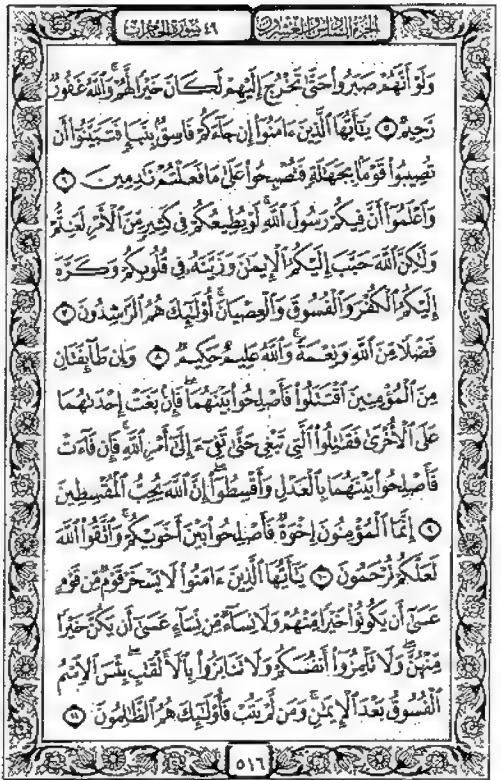 الجزء السادس والعشرون ٤٩ سورة الحجرات
وَلَوْ أَنَّهُمْ صَبَرُوا۟ حَتَّىٰ تَخْرُجَ إِلَيْهِمْ لَكَانَ خَيْرًا لَّهُمْ ۚ وَٱللَّهُ غَفُورٌ
رَّحِيمٌ ۝٥ يَـٰٓأَيُّهَا ٱلَّذِينَ ءَامَنُوٓا۟ إِن جَآءَكُمْ فَاسِقٌۢ بِنَبَإٍ فَتَبَيَّنُوٓا۟ أَن
تُصِيبُوا۟ قَوْمًۢا بِجَهَـٰلَةٍ فَتُصْبِحُوا۟ عَلَىٰ مَا فَعَلْتُمْ نَـٰدِمِينَ ۝٦
وَٱعْلَمُوٓا۟ أَنَّ فِيكُمْ رَسُولَ ٱللَّهِ ۚ لَوْ يُطِيعُكُمْ فِى كَثِيرٍ مِّنَ ٱلْأَمْرِ لَعَنِتُّمْ
وَلَـٰكِنَّ ٱللَّهَ حَبَّبَ إِلَيْكُمُ ٱلْإِيمَـٰنَ وَزَيَّنَهُۥ فِى قُلُوبِكُمْ وَكَرَّهَ
إِلَيْكُمُ ٱلْكُفْرَ وَٱلْفُسُوقَ وَٱلْعِصْيَانَ ۚ أُو۟لَـٰٓئِكَ هُمُ ٱلرَّٰشِدُونَ ۝٧
فَضْلًا مِّنَ ٱللَّهِ وَنِعْمَةً ۚ وَٱللَّهُ عَلِيمٌ حَكِيمٌ ۝٨ وَإِن طَآئِفَتَانِ
مِنَ ٱلْمُؤْمِنِينَ ٱقْتَتَلُوا۟ فَأَصْلِحُوا۟ بَيْنَهُمَا ۖ فَإِنۢ بَغَتْ إِحْدَىٰهُمَا
عَلَى ٱلْأُخْرَىٰ فَقَـٰتِلُوا۟ ٱلَّتِى تَبْغِى حَتَّىٰ تَفِىٓءَ إِلَىٰٓ أَمْرِ ٱللَّهِ ۚ فَإِن فَآءَتْ
فَأَصْلِحُوا۟ بَيْنَهُمَا بِٱلْعَدْلِ وَأَقْسِطُوٓا۟ ۖ إِنَّ ٱللَّهَ يُحِبُّ ٱلْمُقْسِطِينَ
۝٩ إِنَّمَا ٱلْمُؤْمِنُونَ إِخْوَةٌ فَأَصْلِحُوا۟ بَيْنَ أَخَوَيْكُمْ ۚ وَٱتَّقُوا۟ ٱللَّهَ
لَعَلَّكُمْ تُرْحَمُونَ ۝١٠ يَـٰٓأَيُّهَا ٱلَّذِينَ ءَامَنُوا۟ لَا يَسْخَرْ قَوْمٌ مِّن قَوْمٍ
عَسَىٰٓ أَن يَكُونُوا۟ خَيْرًا مِّنْهُمْ وَلَا نِسَآءٌ مِّن نِّسَآءٍ عَسَىٰٓ أَن يَكُنَّ خَيْرًا
مِّنْهُنَّ ۖ وَلَا تَلْمِزُوٓا۟ أَنفُسَكُمْ وَلَا تَنَابَزُوا۟ بِٱلْأَلْقَـٰبِ ۖ بِئْسَ ٱلِٱسْمُ
ٱلْفُسُوقُ بَعْدَ ٱلْإِيمَـٰنِ ۚ وَمَن لَّمْ يَتُبْ فَأُو۟لَـٰٓئِكَ هُمُ ٱلظَّـٰلِمُونَ ۝١١
٥١٦